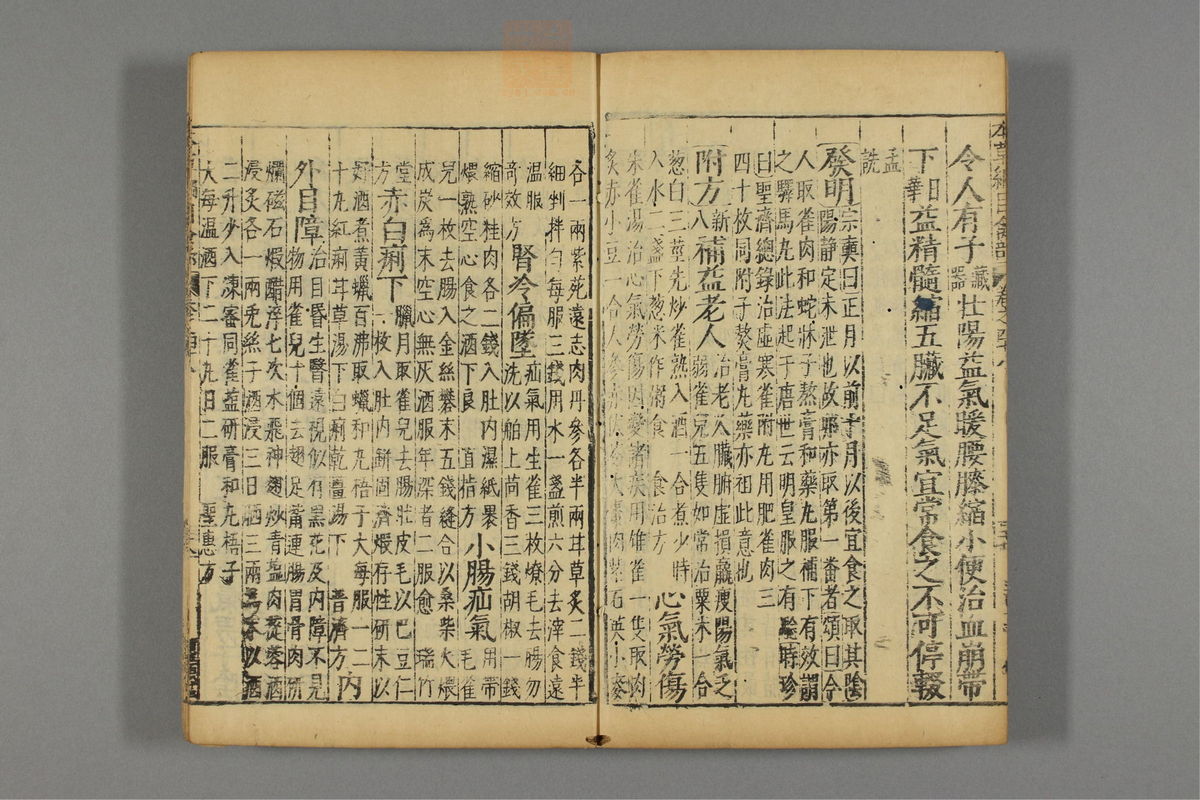 令人有子藏器壯陽益氣暖腰膝縮小便治血崩帶
下日華益精髓縮五臟不足氣宜常食之不可停輟
孟詵
發明宗奭曰正月以前十月以後宜食之取其陰
陽靜定未泄也故藥亦取第一番者頌曰今
人取雀肉和蛇牀子熬膏和藥丸服補下有效謂
之驛馬丸此法起于唐世云明皇服之有驗時珍
曰聖濟總錄治虛寒雀附丸用肥雀肉三
四十枚同附子熬膏丸藥亦祖此意也
附方新八補益老人治老人臟腑虛損羸瘦陽氣乏
弱雀兒五隻如常治粟米一合
葱白三莖先炒雀熟入酒一合煮少時
入水二盞下葱米作粥食食治方心氣勞傷
朱雀湯治心氣勞傷因變諸疾用雄雀一隻取肉
炙赤小豆一合人參赤茯苓大棗肉紫石英小麥
各一兩紫菀遠志肉丹參各半兩甘草炙二錢半
細剉拌勻每服三錢用水一盞煎六分去滓食遠
溫服
奇效方腎冷偏墜疝氣用生雀三枚燎毛去腸勿
洗以舶上茴香三錢胡椒一錢
縮砂桂肉各二錢入肚內濕紙裹
煨熟空心食之酒下良直指方小腸疝氣用帶毛雀
兒一枚去腸入金絲礬末五錢縫合以桑柴火煨
成炭爲末空心無灰酒服年深者二服愈瑞竹
堂方赤白痢下臘月取雀兒去腸肚皮毛以巴豆仁
一枚入肚內餅固濟煅存性研末以
好酒煮黃蠟百沸取蠟和丸梧子大每服一二
十丸紅痢甘草湯下白痢乾薑湯下普濟方內
外目障治目昏生瞖遠視似有黑花及內障不見
物用雀兒十個去翅足觜連腸胃骨肉研
爛磁石煅醋淬七次水飛神麴炒青鹽肉蓯蓉酒
浸炙各一兩兎絲子酒浸三日晒三兩爲末以酒
二升少入凍蜜同雀鹽研膏和丸梧子
大每溫酒下二十丸日二服聖惠方